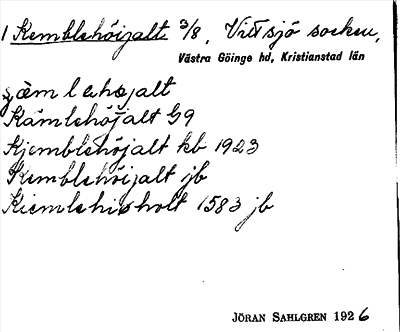 1 Kemblehöijalt 3/8, Vittsjö socken,
Västra Göinge hd, Kristianstad län
Kämlehöjalt G9
Kjemblehöjalt kb 1923
Kemblehöijalt jb
Kiemlehisholt 1583 jb
JÖRAN SAHLGREN 1926